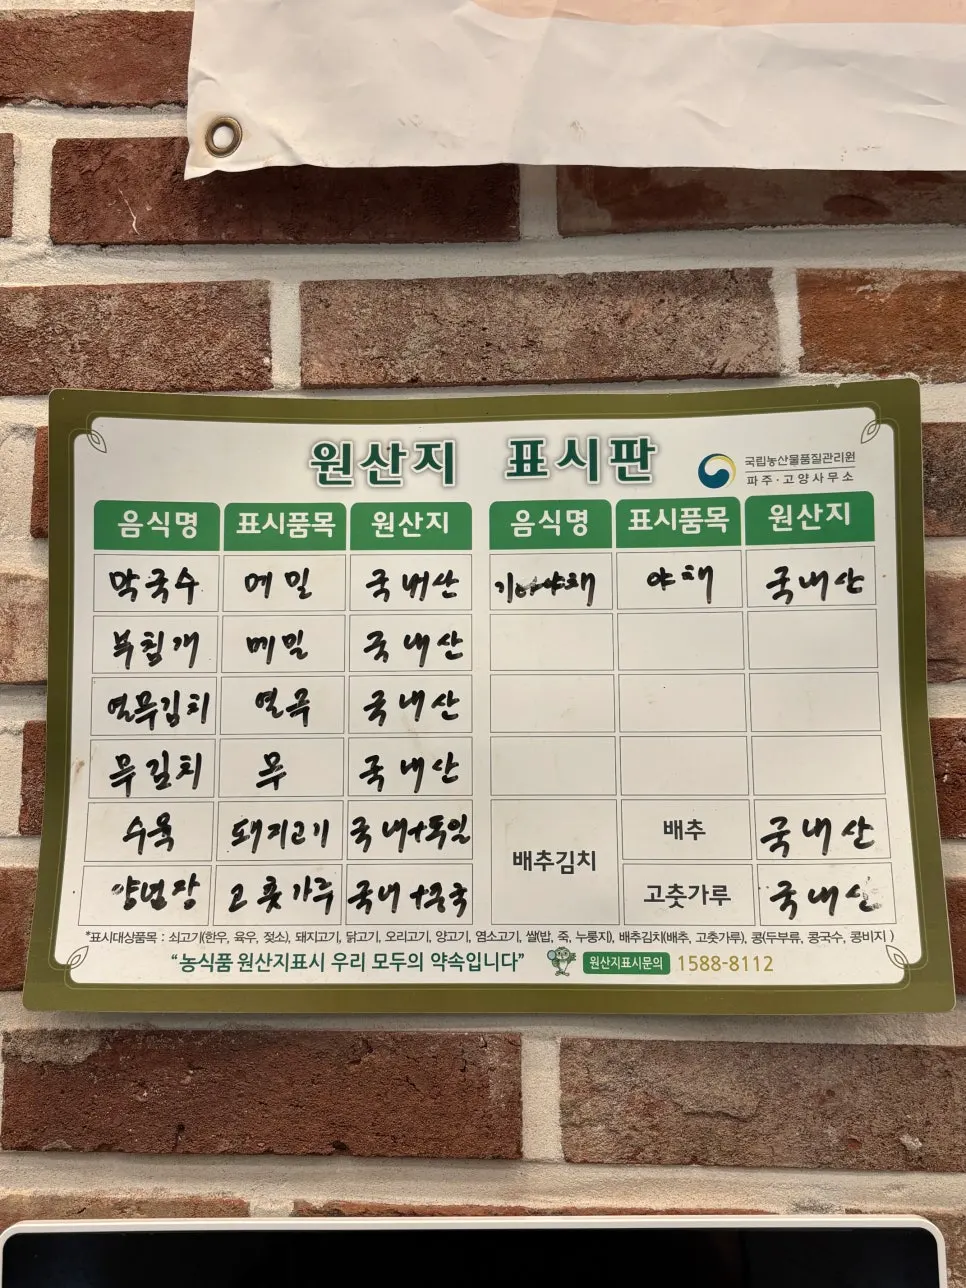 원산지 표시판
국립농산물품질관리원
파주·고양사무소
음식명 표시품목 원산지 음식명 표시품목 원산지
막국수 메밀 국내산 기타야채 야채 국내산
부침개 메밀 국내산
열무김치 열무 국내산
무김치 무 국내산
수육 돼지고기 국내+독일 배추김치 배추 국내산
양념장 고춧가루 국내+중국 고춧가루 국내산
*표시대상품목 : 쇠고기(한우, 육우, 젖소), 돼지고기, 닭고기, 오리고기, 양고기, 염소고기, 쌀(밥, 죽, 누룽지), 배추김치(배추, 고춧가루), 콩(두부류, 콩국수, 콩비지)
"농식품 원산지표시 우리 모두의 약속입니다" 원산지표시문의 1588-8112